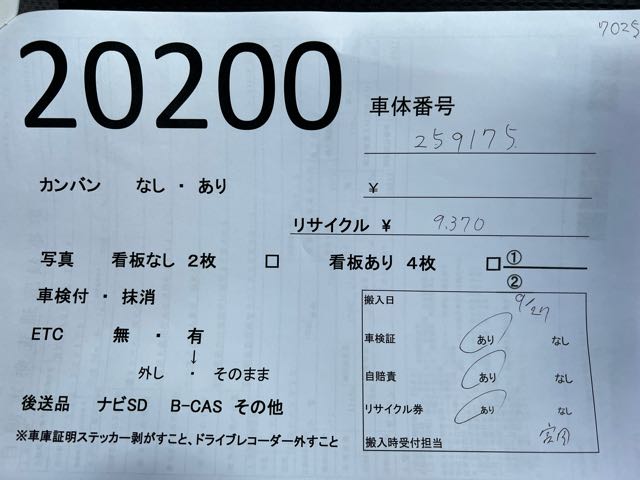 7025
20200
車体番号
259175
カンバン なし ・ あり
¥
リサイクル ¥ 9.370
写真 看板なし 2枚 □ 看板あり 4枚 □ ①
②
車検付 ・ 抹消
ETC 無 ・ 有
↓
外し ・ そのまま
後送品 ナビSD B-CAS その他
※車庫証明ステッカー剥がすこと、ドライブレコーダー外すこと
搬入日 9/27
車検証 あり なし
自賠責 あり なし
リサイクル券 あり なし
搬入時受付担当